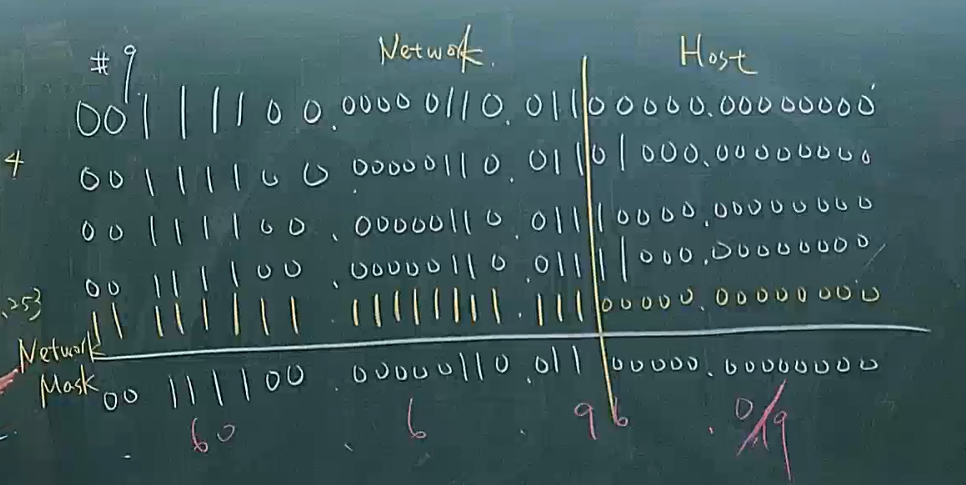 #9 Network Host
00111100.00000110.01100000.00000000
4 00111100 .00000110.01101000.00000000
00111100.00000110.01110000.00000000
00111100.00000110.01111000.00000000
11111111.11111111.11100000.00000000
Network
Mask 00111100.00000110.01100000.00000000
60 . 6 . 96 . 0/19